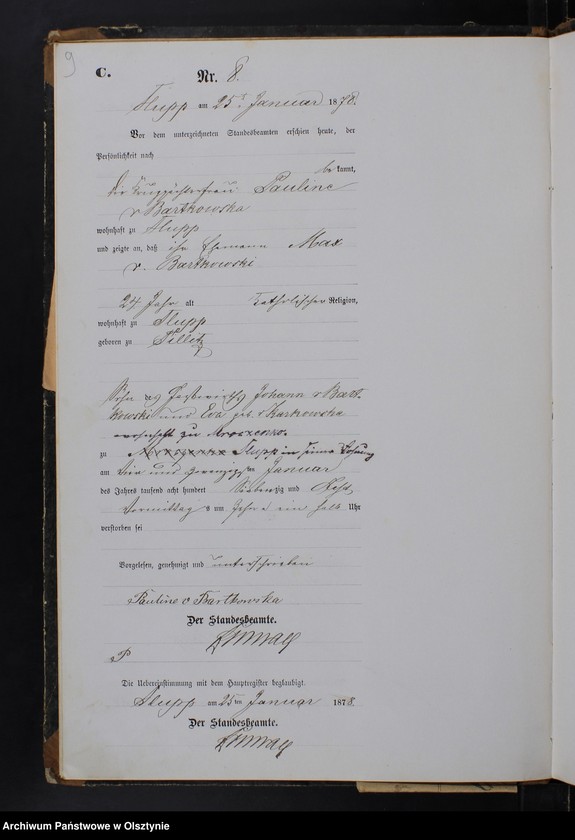 9
C.
Nr. 8.
Slupp am 25t Januar 1878.
Vor dem unterzeichneten Standesbeamten erschien heute, der
Persönlichkeit nach
bekannt,
die Pauline
v Bartkowska
wohnhaft zu Slupp
und zeigte an, daß ihr Ehemann Max
v. Bartkowski
24 Jahr alt katholischer Religion,
wohnhaft zu Slupp
geboren zu
Sohn Johann v Bart-
kowski und Eva geb. v Karkowska
wohnhaft zu Mroczenko.
zu Slupp in seiner Wohnung
am vier und zwanzigsten Januar
des Jahres tausend acht hundert siebenzig und Acht
Vormittag s um Zehn ein halb Uhr
verstorben sei
Vorgelesen, genehmigt und unterschrieben
Pauline v Bartkowska
Der Standesbeamte.
Die Uebereinstimmung mit dem Hauptregister beglaubigt.
Slupp am 25ten Januar 1878.
Der Standesbeamte.
Archiwum Państwowe w Olsztynie